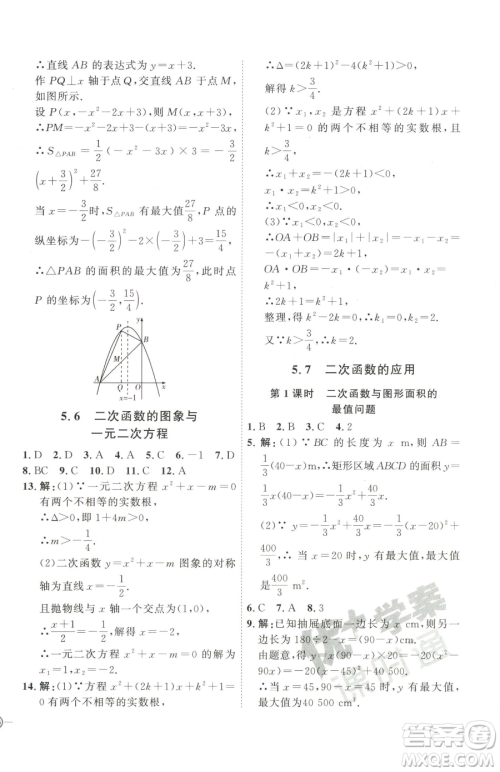 ∴直线 AB 的表达式为 y=x+3.
作 PQ⊥x 轴于点 Q,交直线 AB 于点 M,
如图所示.
设 P(x,-x²-2x+3),则 M(x,x+3).
∴PM=-x²-2x+3-(x+3)=-x²-3x.
∴S△PAB=1/2(-x²-3x)×3=-3/2
(x+3/2)²+27/8.
当 x=-3/2时,S△PAB 有最大值27/8,P 点的
纵坐标为-(-3/2)²-2×(-3/2)+3=15/4.
∴△PAB 的面积的最大值为27/8,此时点
P 的坐标为(-3/2,15/4).
y
P
B
M
A
Q
O
x
x=-1
5.6 二次函数的图象与
一元二次方程
1. D 2. D 3. A 4. A 5. B 6. -1 7. D
8. BC 9. C 10. D 11. C 12. A
13. 解:(1)∵一元二次方程 x²+x-m=0
有两个不相等的实数根,
∴Δ>0,即 1+4m>0.
∴m>-1/4.
(2)二次函数 y=x²+x-m 图象的对称
轴为直线 x=-1/2,
且抛物线与 x 轴交点关于对称轴对称,
∴(x₁+1)/2=-1/2,解得 x₁=-2.
∴一元二次方程 x²+x-m=0 的解为
x₁=-2,x₂=1.
14. 解:(1)∵方程 x²+(2k+1)x+k²+1=
0 有两个不相等的实数根,
∴Δ=(2k+1)²-4(k²+1)=4k-3>0.
∴k>3/4.
(2)∵x₁,x₂ 是方程 x²+(2k+1)x+
k²+1=0 的两个不相等的实数根,且
k>3/4,
∴x₁+x₂=-(2k+1)<0,x₁·x₂=k²+1>0.
∴x₁<0,x₂<0.
∴OA+OB=|x₁|+|x₂|=-x₁-x₂=2k+1,
OA·OB=|x₁|·|x₂|=x₁·x₂=k²+1.
∴2k+1=k²+1.
整理,得 k²-2k=0.解得 k₁=0,k₂=2.
又∵k>3/4,∴k=2.
5.7 二次函数的应用
第 1 课时 二次函数与图形面积的
最值问题
1. B 2. B 3. C 4. 2
5. 解:(1)∵BC 的长度为 x m,∴AB=
1/3(40-x)m.∴矩形区域 ABCD 的面积 y=
1/3x(40-x)=-1/3x²+40/3x.
(2)∵y=-1/3x²+40/3x=-1/3(x-20)²+
400/3,∴当 x=20 时,y 有最大值,最大值
是400/3 m².
6. C 7. A 8. 3
9. 解:∵已知抽展底面一边长为 x cm,则另一边
长为 180÷2-x=(90-x)(cm).
由题意,得 y=20x(90-x)=-20(x-45)²+40 500.
∴当 x=45 时,y 有最大值,最大值为 40 500 cm³.